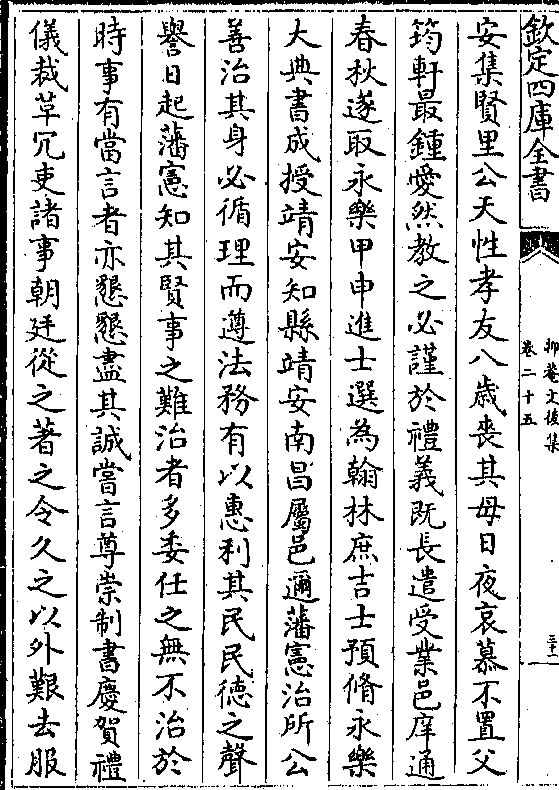 欽定四庫全書
抑菴文後集
卷二十五
三十一
安集賢里公天性孝友八歲喪其母日夜哀慕不置父
筠軒最鍾愛然教之必謹於禮義既長遣受業邑庠通
春秋遂取永樂甲申進士選為翰林庶吉士預脩永樂
大典書成授靖安知縣靖安南昌屬邑邇藩憲治所公
善治其身必循理而遵法務有以惠利其民民德之聲
譽日起藩憲知其賢事之難治者多委任之無不治於
時事有當言者亦懇懇盡其誠嘗言尊崇制書慶賀禮
儀裁草冗吏諸事朝廷從之著之令久之以外艱去服